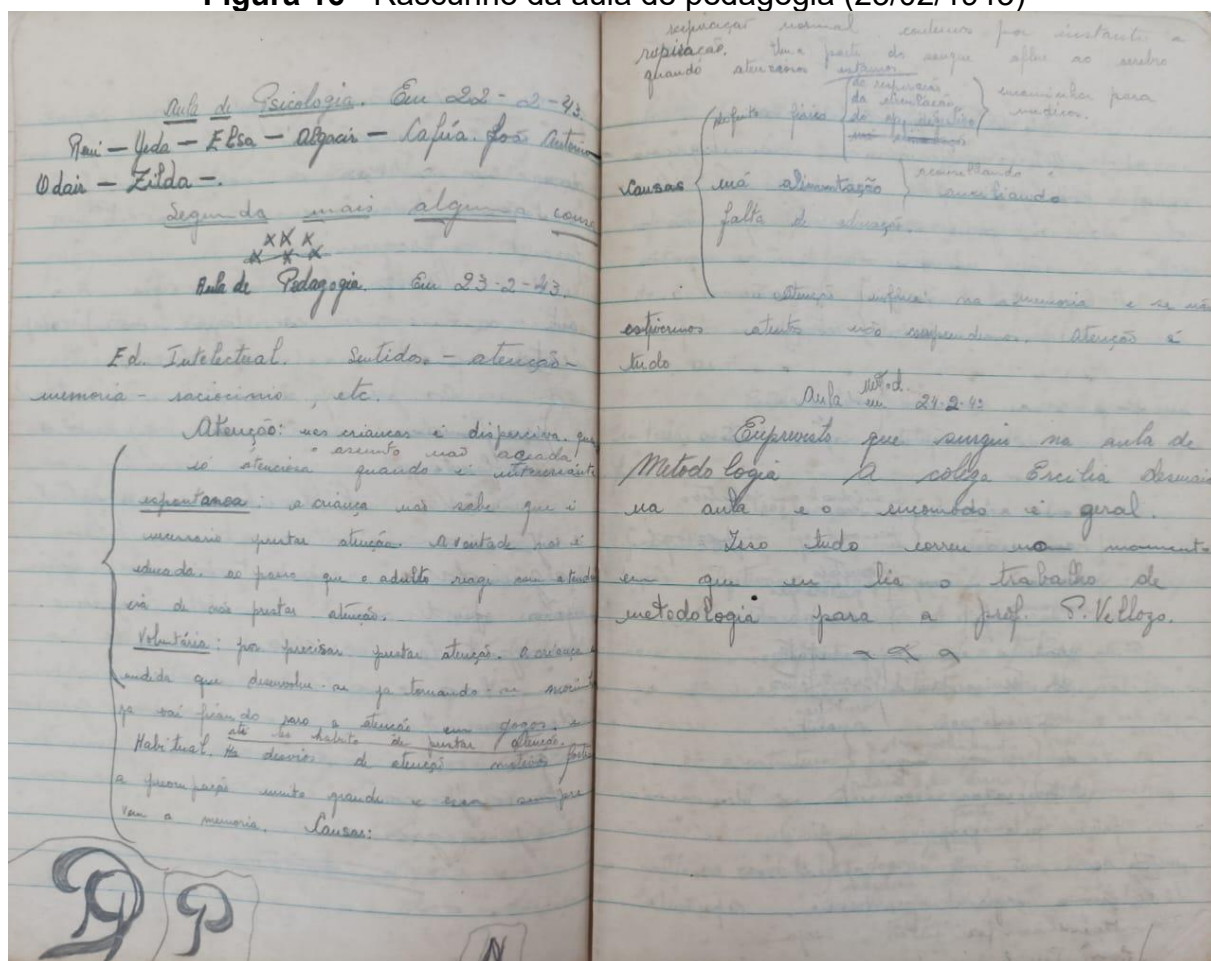 Figura 10 - Rascunho da aula de pedagogia (23/02/1943)
Aula de Psicologia. Em 22-2-43.
Remi — Yeda — Elsa — Algacir — Cafúa. José Antonio
Odair — Zilda —.
Segunda mais alguma
x x x
x x x
Aula de Pedagogia. Em 23-2-43.
Ed. Intelectual. Sentidos. - atenção -
memoria - raciocinio, etc.
Atenção: nas crianças é dispersiva.
o assunto não agrada
só quando é
espontanea: a criança não sabe que é
necessario prestar atenção. A vontade não é
educada. ao passo que o adulto reage com a tenden
cia de não prestar atenção.
Voluntária: por precisar prestar atenção. A criança a
medida que desenvolve-se ja tornando-se
ja vai a atenção em jogos; e
até ao habito de prestar atenção.
Habitual. Ha desvios de atenção motivos fortes
a preocupação muito grande e essa sempre
vem a memoria. Causas:
P P
N
respiração normal contemos por instante a
respiração. Uma parte do sangue aflue ao cerebro
quando atenciosos estamos
da respiração
da circulação
do ap. digestivo
encaminhar para
medico.
defeito fisico
Causas
má alimentação
aconselhando e
auxiliando
falta de educação.
atenção na memoria e se não
estivermos atentos não compreendemos. Atenção é
tudo
Aula metod.
em 24-2-43
Emprevisto que surgiu na aula de
Metodologia A colega Ercilia desmaia
na aula e o incomodo é geral.
Isso tudo correu no momento
em que eu lia o trabalho de
metodologia para a prof. P. Vellozo.